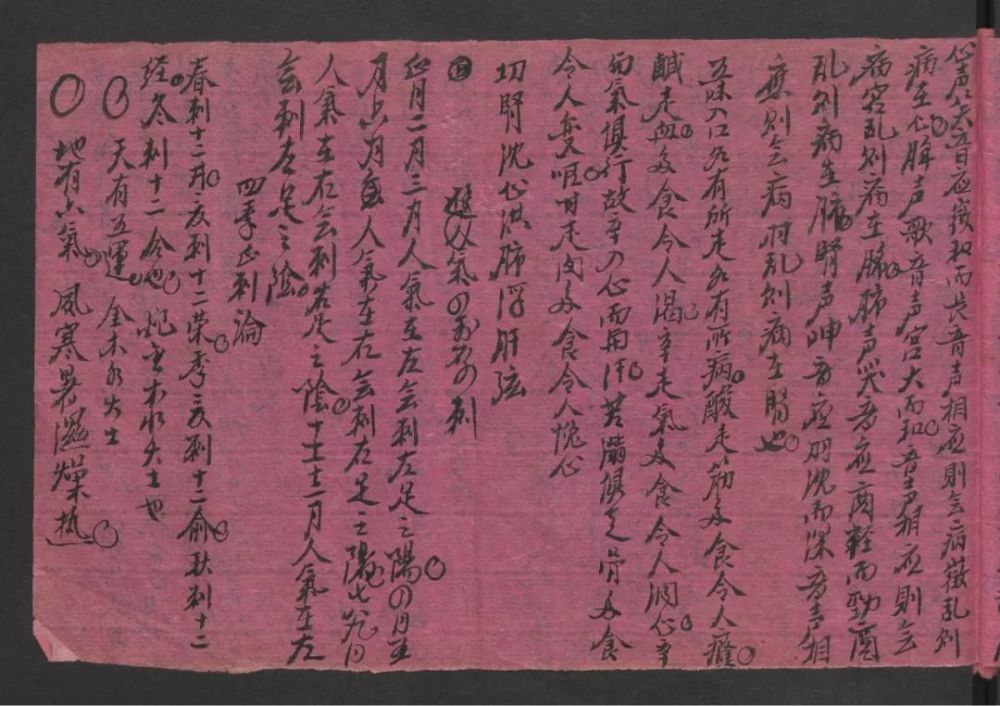 心声笑音应徵和而長音声相应則無病徵乱則
病在心脾声歌音声宮大而和音声相应則無
病宮乱則病在脾肺声哭音应商輕而勁商
乱則病在肺腎声呻音应羽沈而深音声相
應則無病羽乱則病在腎也
五味入口各有所走各有所病酸走筋多食令人癃
鹹走血多食令人渴辛走氣多食令人洞心辛
与氣俱行故辛入心而与汗俱苦走骨多食
令人變嘔甘走肉多食令人悗心
切腎沈心洪肺浮肝弦
人氣の刺
正月二月三月人氣在左無刺左足之陽四月五
月六月人氣在右無刺右足之陽七八九月
人氣在右無刺右足之陰十十一十二月人氣在左
無刺左足之陰
四季正刺論
春刺十二井夏刺十二荣季夏刺十二俞秋刺十二
经冬刺十二合也 木火土也
天有五運 金木水火土
地有六氣 風寒暑濕燥热